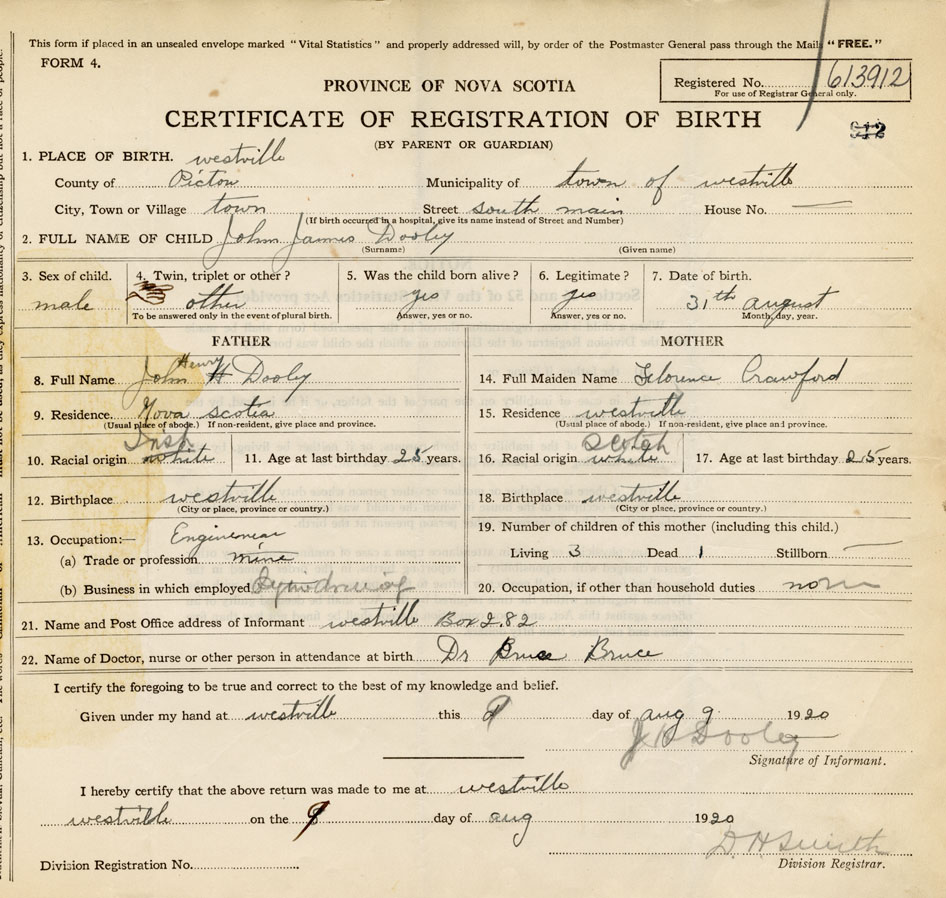 This form if placed in an unsealed envelope marked "Vital Statistics" and properly addressed will, by order of the Postmaster General pass through the Mail, "FREE."
FORM 4.
Registered No. 613912
For use of Registrar General only.
PROVINCE OF NOVA SCOTIA
CERTIFICATE OF REGISTRATION OF BIRTH
(BY PARENT OR GUARDIAN)
1. PLACE OF BIRTH. westville
County of Picton Municipality of town of westville
City, Town or Village town Street south main House No. —
(If birth occurred in a hospital, give its name instead of Street and Number)
2. FULL NAME OF CHILD John James Dooly
(Surname) (Given name)
3. Sex of child. 4. Twin, triplet or other? 5. Was the child born alive? 6. Legitimate? 7. Date of birth.
male other yes yes 31th august
To be answered only in the event of plural birth. Answer, yes or no. Answer, yes or no. Month, day, year.
FATHER MOTHER
Henry
8. Full Name John H Dooly 14. Full Maiden Name Florence Crawford
9. Residence. Nova scotia 15. Residence westville
(Usual place of abode.) If non-resident, give place and province. (Usual place of abode.) If non-resident, give place and province.
Irish Scotch
10. Racial origin white 11. Age at last birthday 25 years. 16. Racial origin white 17. Age at last birthday 25 years.
12. Birthplace westville 18. Birthplace westville
(City or place, province or country.) (City or place, province or country.)
19. Number of children of this mother (including this child.)
13. Occupation:— Engineneer
(a) Trade or profession mine Living 3 Dead 1 Stillborn —
(b) Business in which employed 20. Occupation, if other than household duties none
21. Name and Post Office address of Informant westville Box 282
22. Name of Doctor, nurse or other person in attendance at birth Dr Bruce Bruce
I certify the foregoing to be true and correct to the best of my knowledge and belief.
Given under my hand at westville this 9 day of aug 9 1920
J H Dooley
Signature of Informant.
I hereby certify that the above return was made to me at westville
westville on the 9 day of aug 1920
D. H Smith
Division Registration No. Division Registrar.